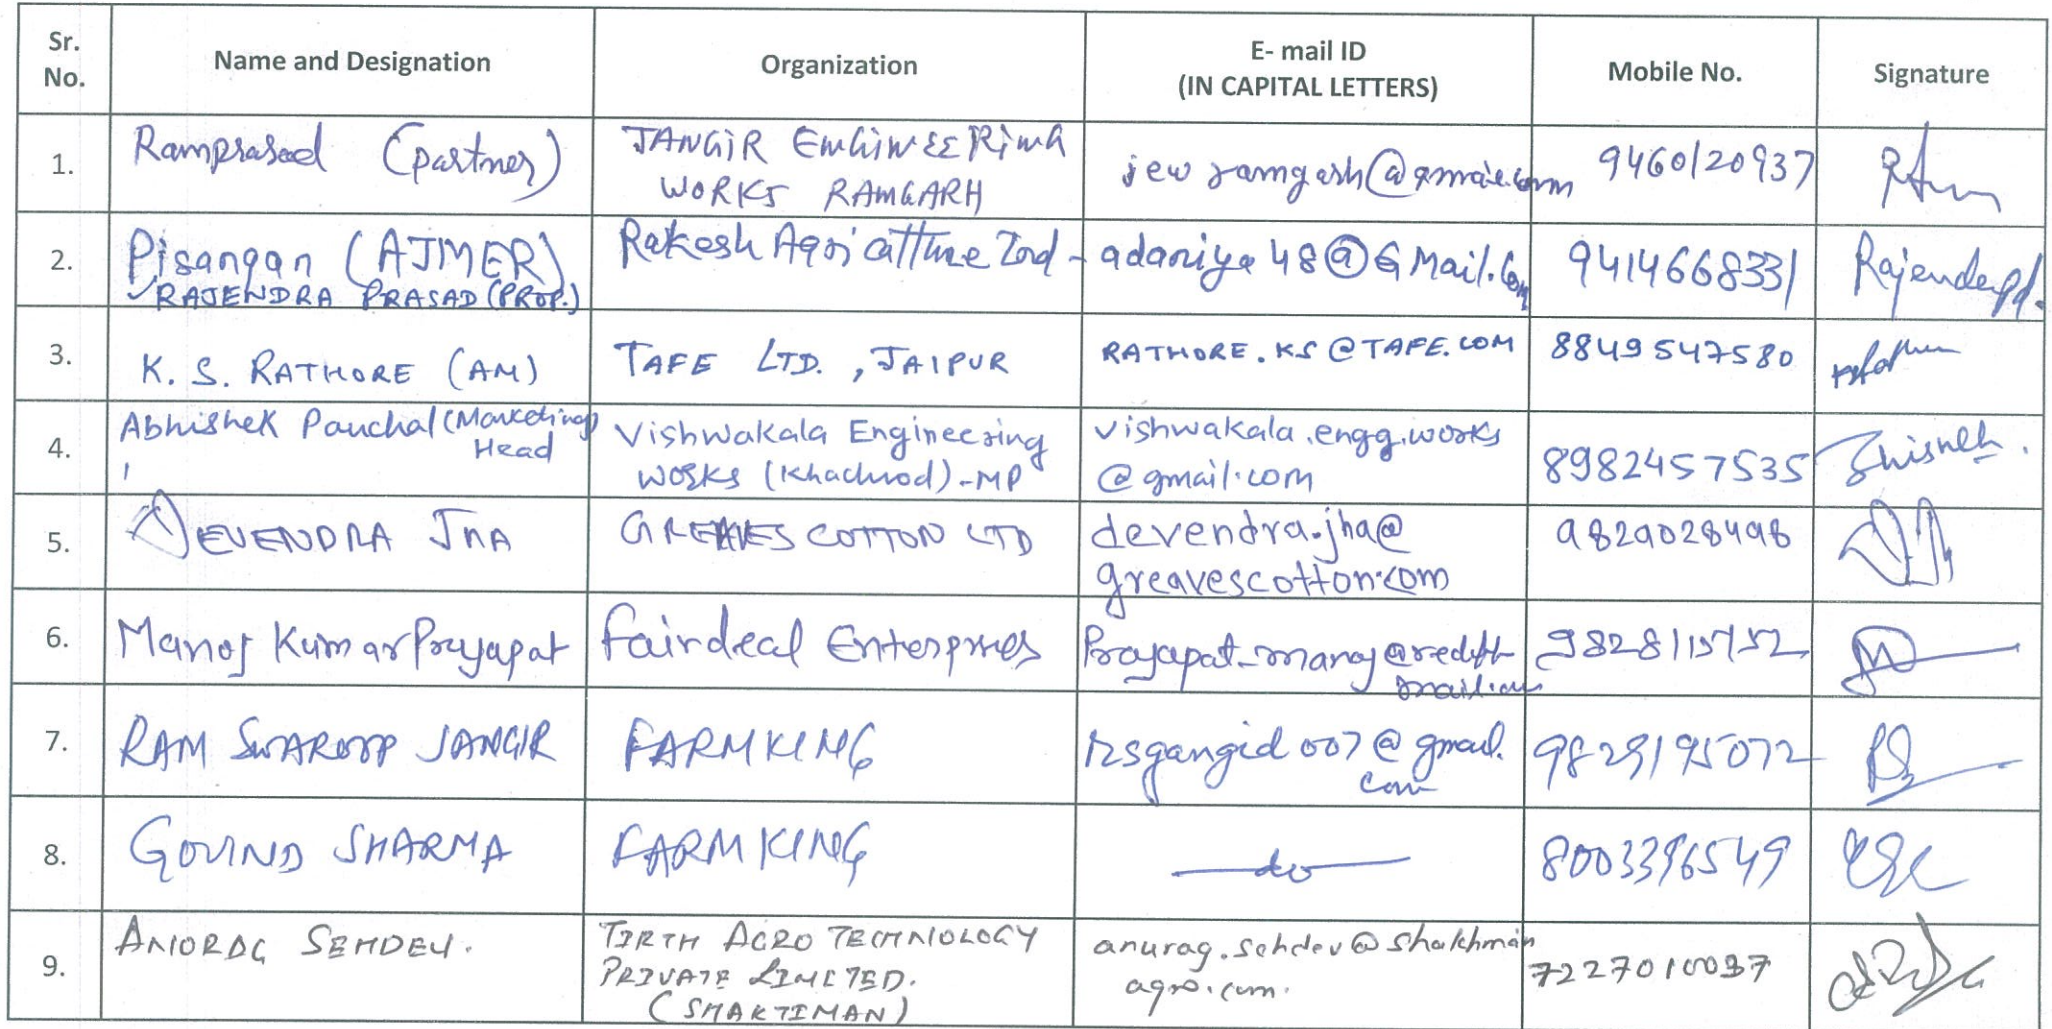 Sr. No. Name and Designation Organization E- mail ID (IN CAPITAL LETTERS) Mobile No. Signature
1. Ramprasad (partner) JANGIR ENGINEERING WORKS RAMGARH jew ramgarh@gmail.com 9460120937
2. Pisangan (AJMER) RAJENDRA PRASAD (PROP.) Rakesh Agri catture Ind - adaniya48@GMail.Com 9414668331 Rajendra pd.
3. K. S. RATHORE (AM) TAFE LTD. , JAIPUR RATHORE.KS@TAFE.COM 8849547580
4. Abhishek Panchal (Marketing) Head Vishwakala Engineering works (Khachrod) - MP vishwakala.engg.works @gmail.com 8982457535
5. DEVENDRA JHA GREAVES COTTON LTD devendra.jha@ greavescotton.com 9829028498
6. Manoj Kumar Prajapat Fairdeal Enterprises Prajapat_manoj@rediff mail.com 9828115752
7. RAM SWAROOP JANGIR FARMKING rsgangid007@gmail. com 9829195072
8. GOVIND SHARMA FARMKING do 8003396549
9. ANURAG SEHDEV. TIRTH AGRO TECHNOLOGY PRIVATE LIMITED. (SHAKTIMAN) anurag.sehdev@shakhman agro.com. 7227010037